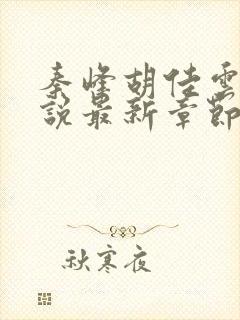 秦峰胡佳雲
說最新章節
秋寒夜